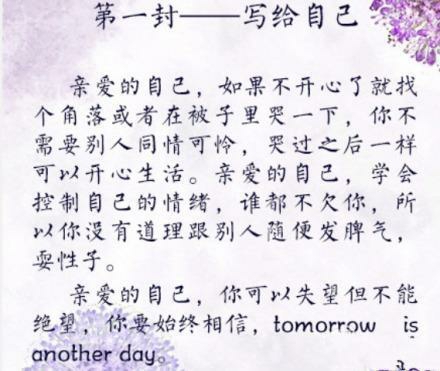 第一封——写给自己
亲爱的自己，如果不开心了就找
个角落或者在被子里哭一下，你不
需要别人同情可怜，哭过之后一样
可以开心生活。亲爱的自己，学会
控制自己的情绪，谁都不欠你，所
以你没有道理跟别人随便发脾气，
耍性子。
亲爱的自己，你可以失望但不能
绝望，你要始终相信，tomorrow is
another day。